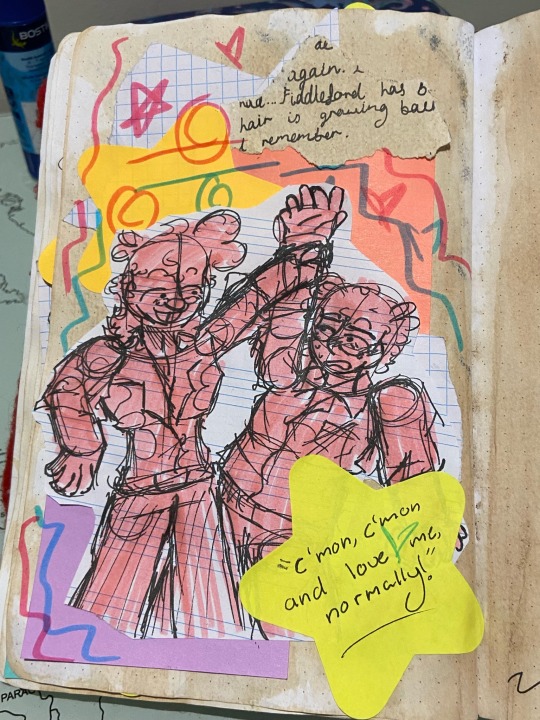 BOST
de
again. I
nad... Fiddleford has b
hair is growing back
I remember.
"c'mon, c'mon
and love me,
normally!"
PARAG